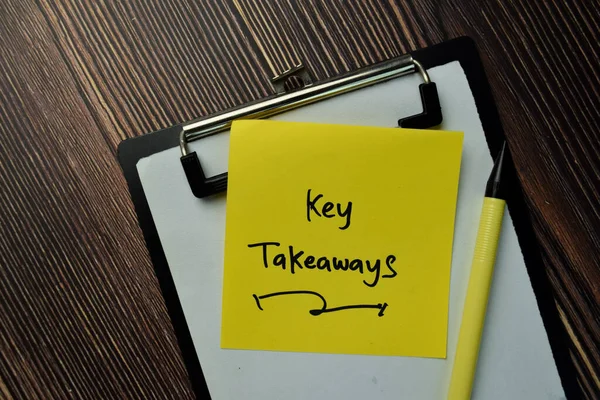 Key
Takeaways